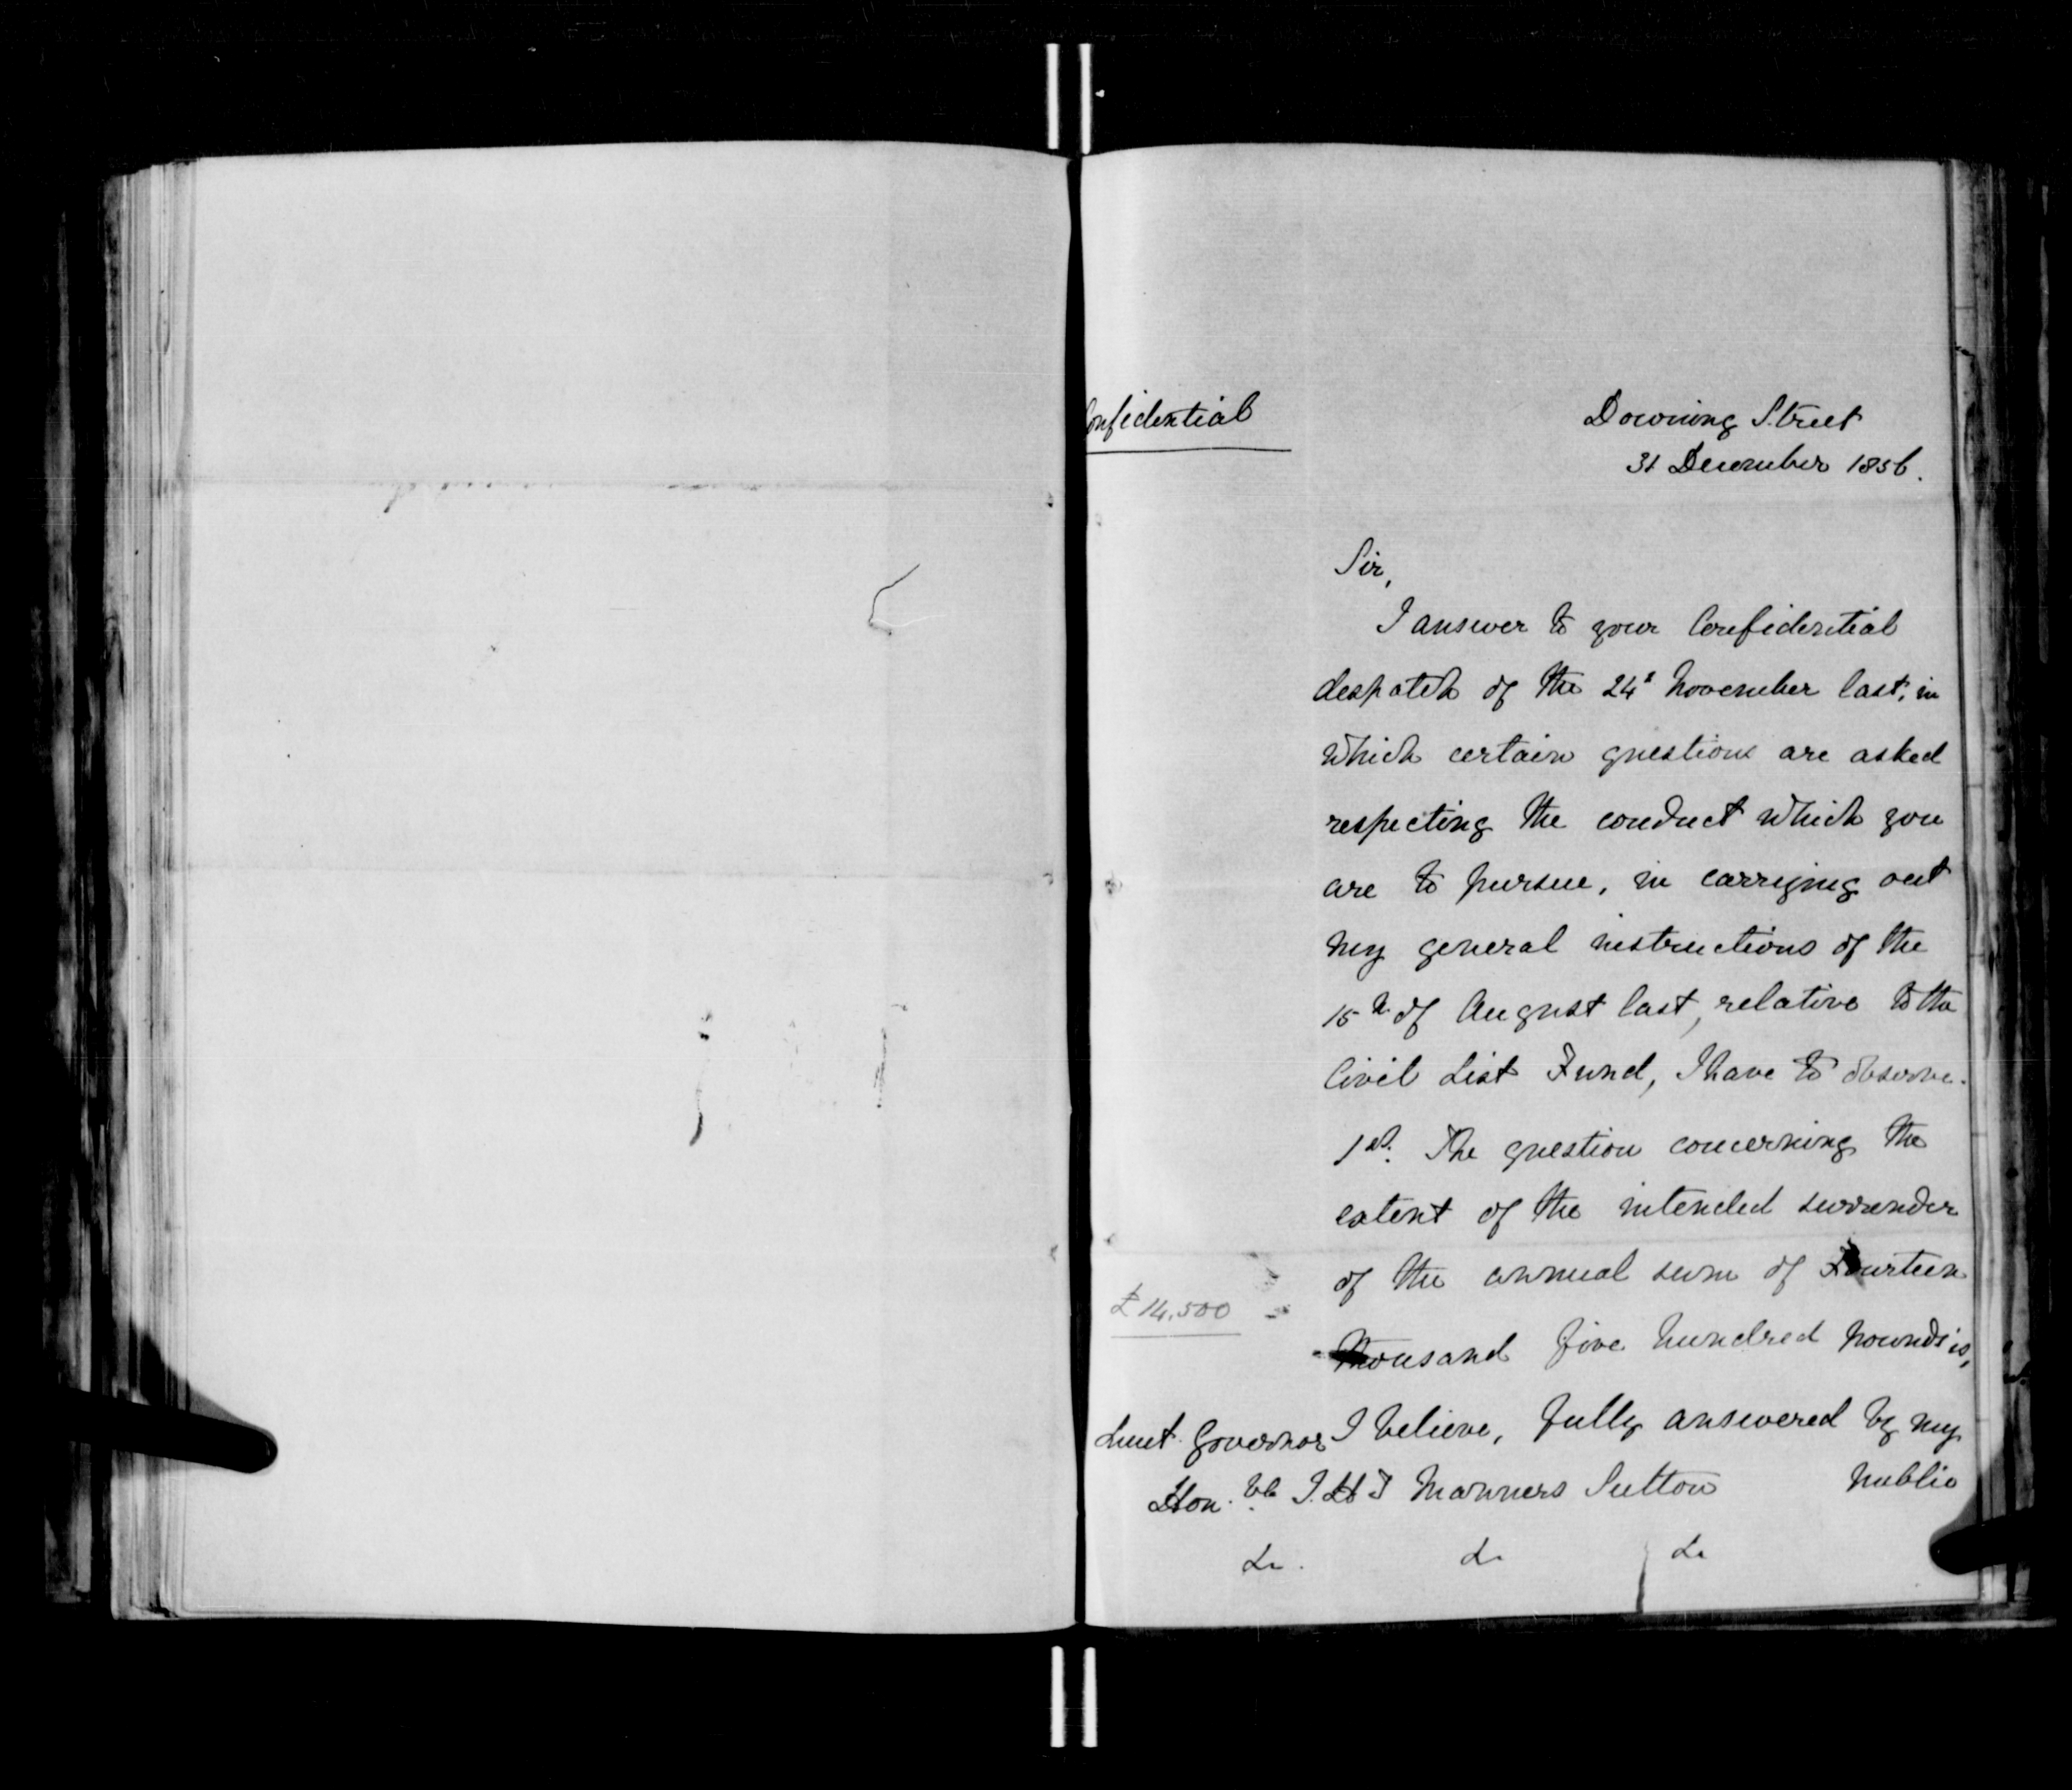 Confidential
Downing Street
31 December 1856.
Sir,
I answer to your Confidential
despatch of the 24th November last, in
which certain questions are asked
respecting the conduct which you
are to pursue, in carrying out
my general instructions of the
15th of August last, relative to the
Civil List Fund, I have to observe.
1st. The question concerning the
extent of the intended surrender
of the annual sum of Fourteen
£14,500
thousand five hundred pounds is,
I believe, fully answered by my
public
Lieut. Governor
Honble J. H T Manners Sutton
&c. &c &c